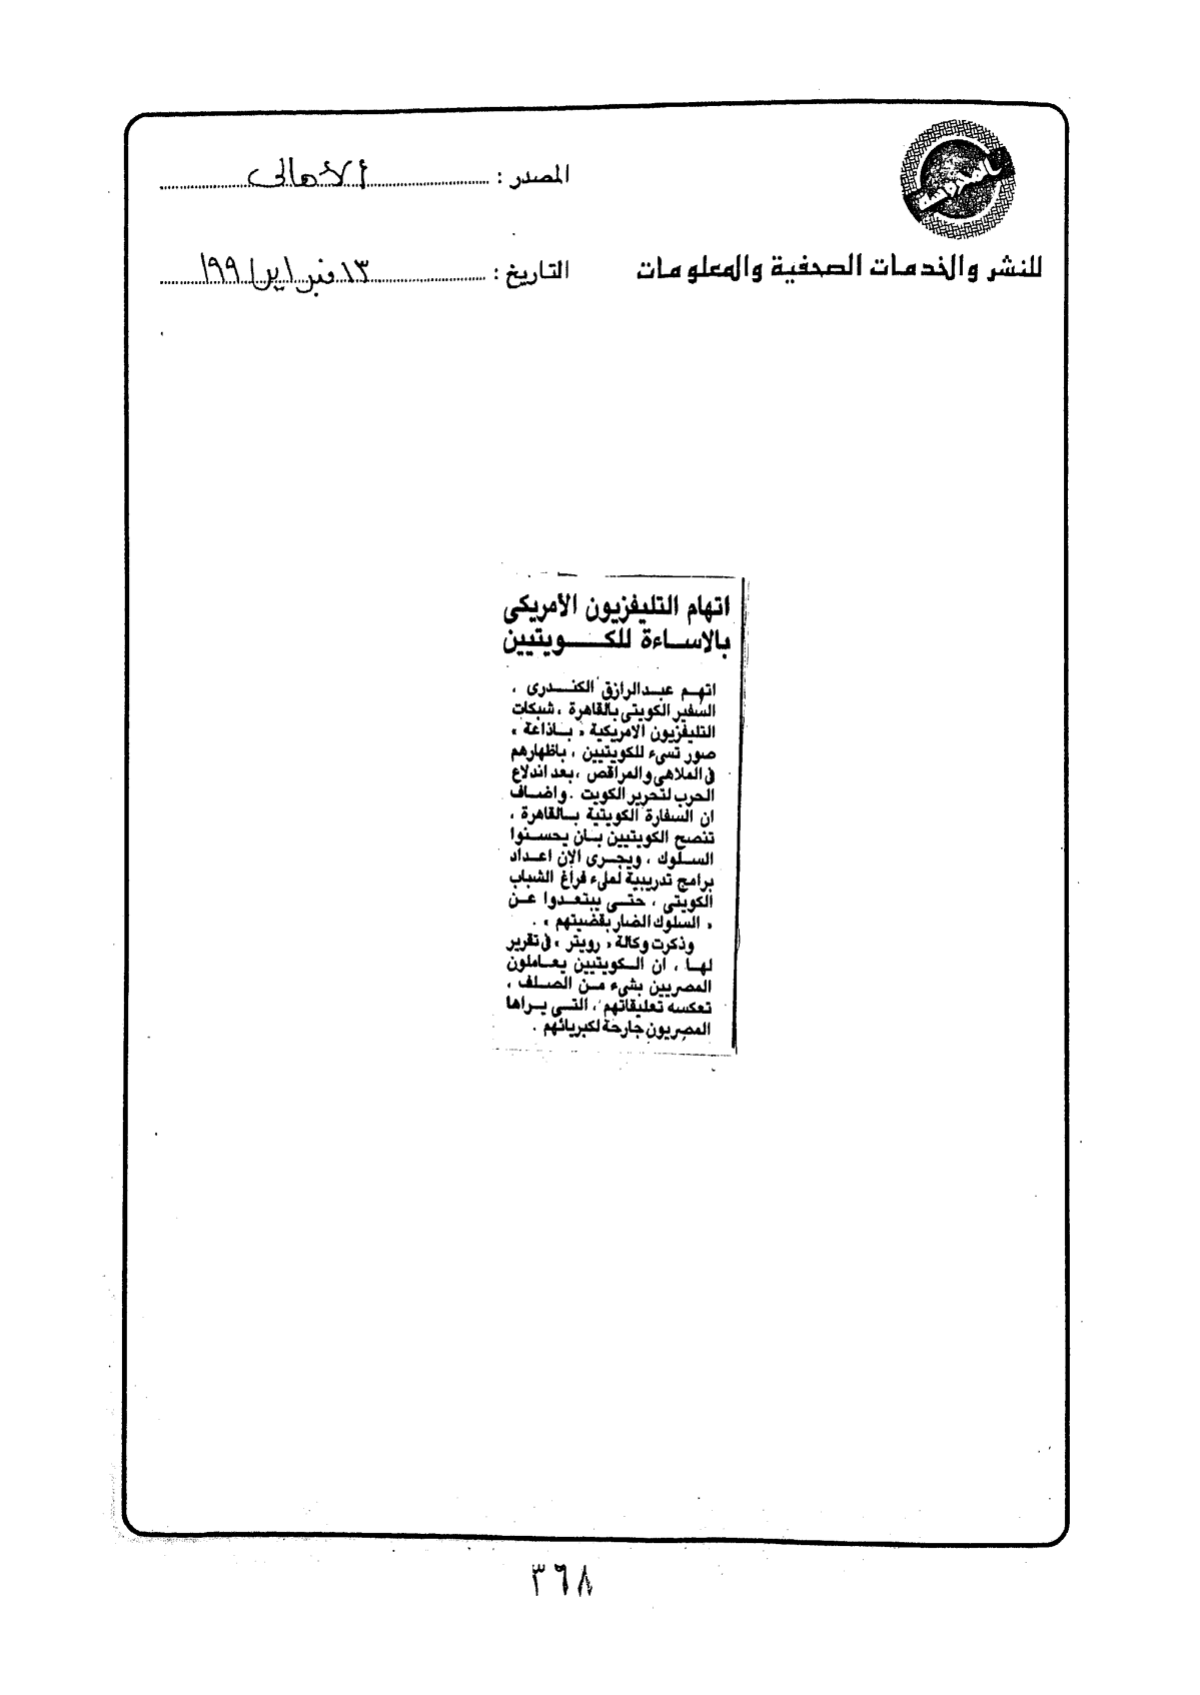 المصدر : الأهالى
للنشر والخدمات الصحفية والمعلومات
التاريخ : ١٣ فبراير ١٩٩١
اتهام التليفزيون الأمريكى
بالاساءة للكويتيين
اتهم عبدالرازق الكندرى ،
السفير الكويتى بالقاهرة ، شبكات
التليفزيون الامريكية « باذاعة »
صور تسىء للكويتيين ، باظهارهم
فى الملاهى والمراقص ، بعد اندلاع
الحرب لتحرير الكويت . واضاف
ان السفارة الكويتية بالقاهرة ،
تنصح الكويتيين بان يحسنوا
السلوك ، ويجرى الان اعداد
برامج تدريبية لملىء فراغ الشباب
الكويتى ، حتى يبتعدوا عن
« السلوك الضار بقضيتهم » .
وذكرت وكالة « رويتر » فى تقرير
لها ، ان الكويتيين يعاملون
المصريين بشىء من الصلف ،
تعكسه تعليقاتهم ، التى يراها
المصريون جارحة لكبريائهم .
٣٦٨